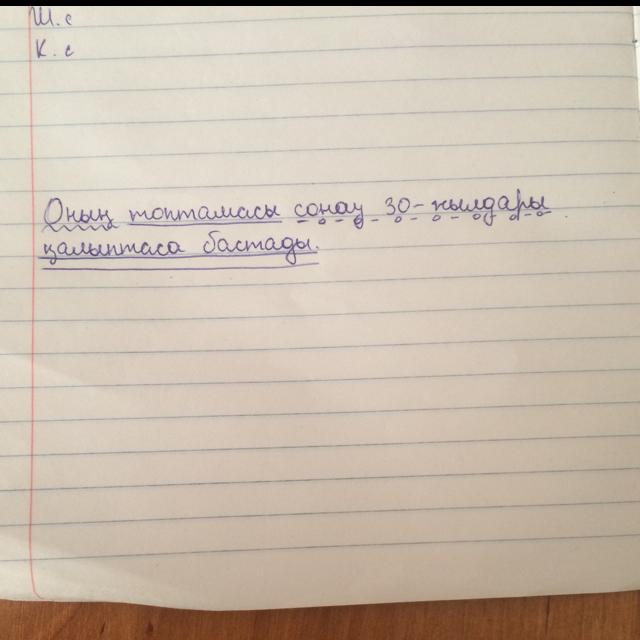 Ш.с
К.с
Оның топтамасы сонау 30-жылдары
қалыптаса бастады.